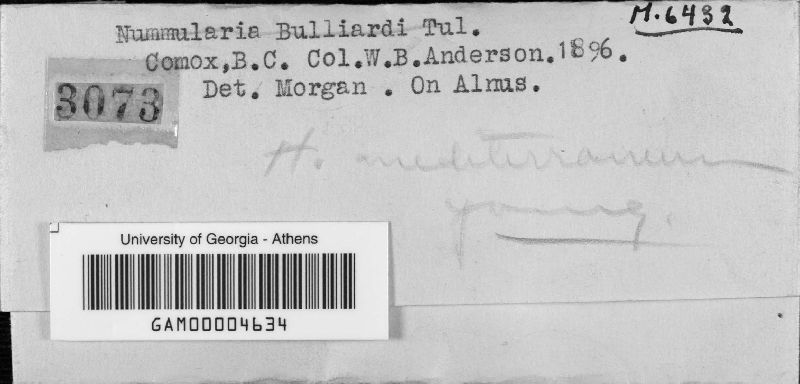 M.6432
Nummularia Bulliardi Tul.
Comox,B.C. Col.W.B.Anderson.1896.
Det. Morgan . On Alnus.
3073
H. mediterraneum
young.
University of Georgia - Athens
GAM00004634